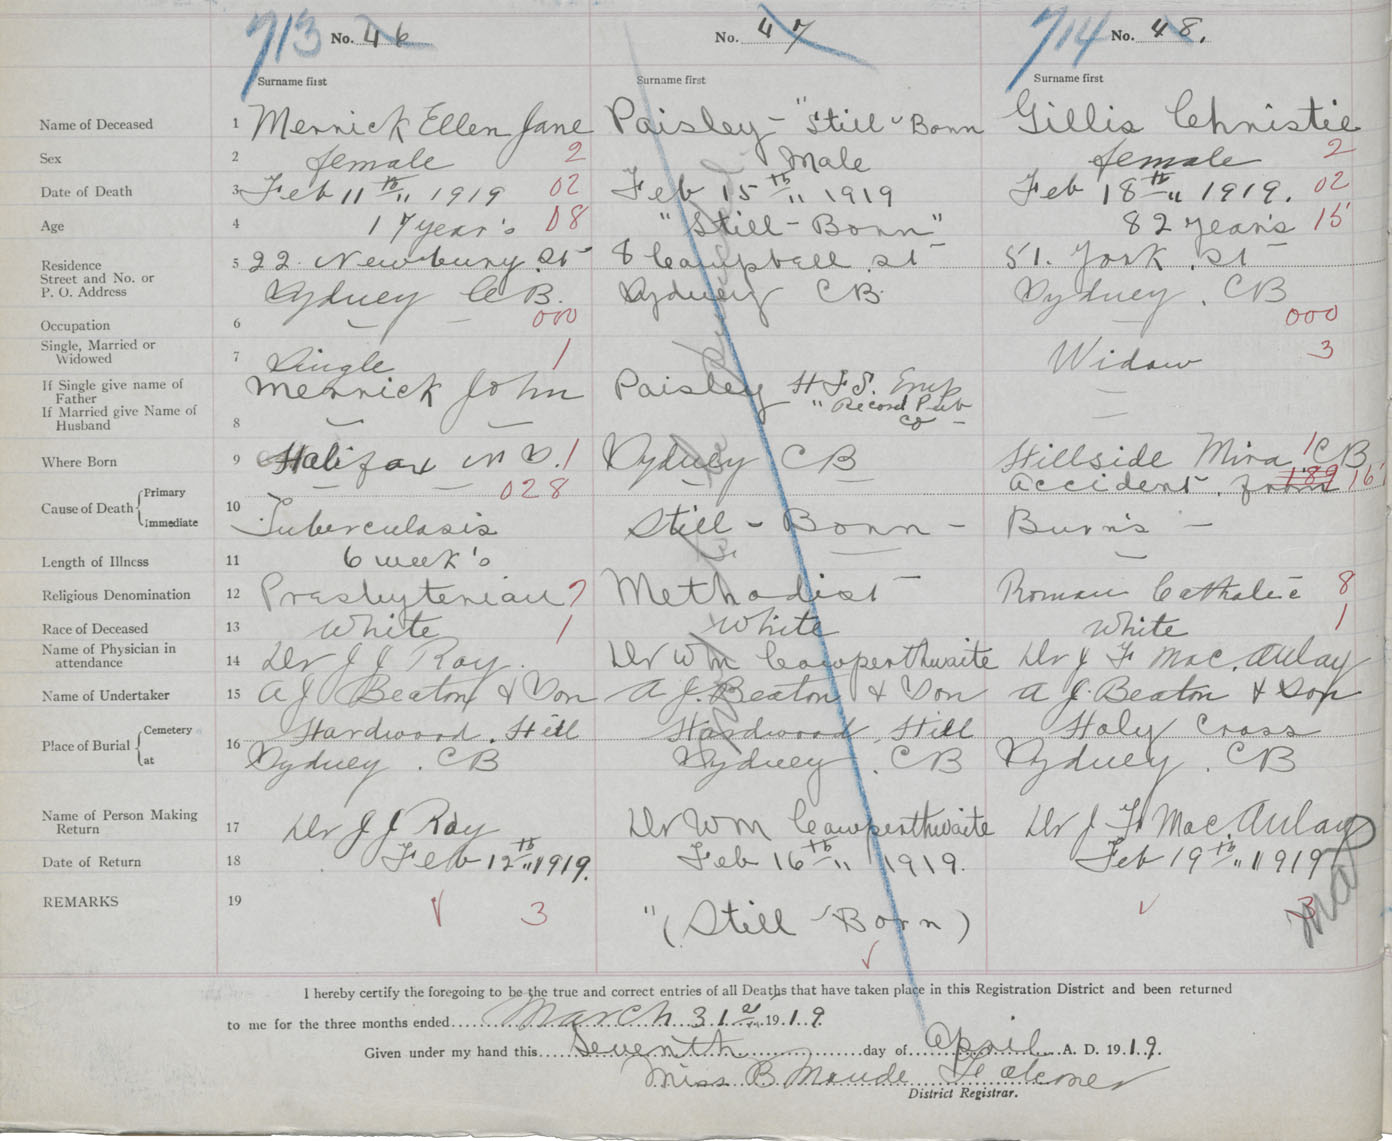 713 No. 46 No. 47 714 No. 48.
Surname first Surname first Surname first
Name of Deceased 1 Merrick Ellen Jane Paisley - "Still-Born Gillis Christie
Sex 2 female 2 Male female 2
Date of Death 3 Feb 11th " 1919 02 Feb 15th " 1919 Feb 18th " 1919. 02
Age 4 17 year's 08 "Still-Born" 82 year's 15
Residence
Street and No. or
P. O. Address
5 22 Newbury St 8 Campbell St 51. York St
Sydney C B. Sydney CB. Sydney. CB
Occupation 6 000 000
Single, Married or
Widowed
7 Single 1 Widow 3
If Single give name of
Father
If Married give Name of
Husband
8 Merrick John Paisley H F S. Emp
" Record Pub
Co -
Where Born 9 Halifax N S. 1 Sydney CB Hillside Mira 1 CB
Cause of Death Primary 028 accident from 189 16
Immediate
10 Tuberculosis Still-Born - Burn's -
Length of Illness 11 6 week's
Religious Denomination 12 Presbyterian 7 Methodist Roman Catholic 8
Race of Deceased 13 White 1 White White 1
Name of Physician in
attendance
14 Dr J J Roy. Dr Wm Cowperthwaite Dr J F MacAulay
Name of Undertaker 15 A J Beaton & Son A J. Beaton & Son A J. Beaton & Son
Place of Burial Cemetery
at
16 Hardwood Hill Hardwood Hill Holy Cross
Sydney. CB Sydney. CB Sydney. CB
Name of Person Making
Return
17 Dr J J Roy Dr Wm Cowperthwaite Dr J F MacAulay
Date of Return 18 Feb 12th " 1919. Feb 16th " 1919. Feb 19th " 1919
REMARKS 19 3 "(Still-Born) 3
I hereby certify the foregoing to be the true and correct entries of all Deaths that have taken place in this Registration District and been returned
to me for the three months ended March 31st 1919.
Given under my hand this Seventh day of April A. D. 1919.
Miss B Maude Falconer
District Registrar.